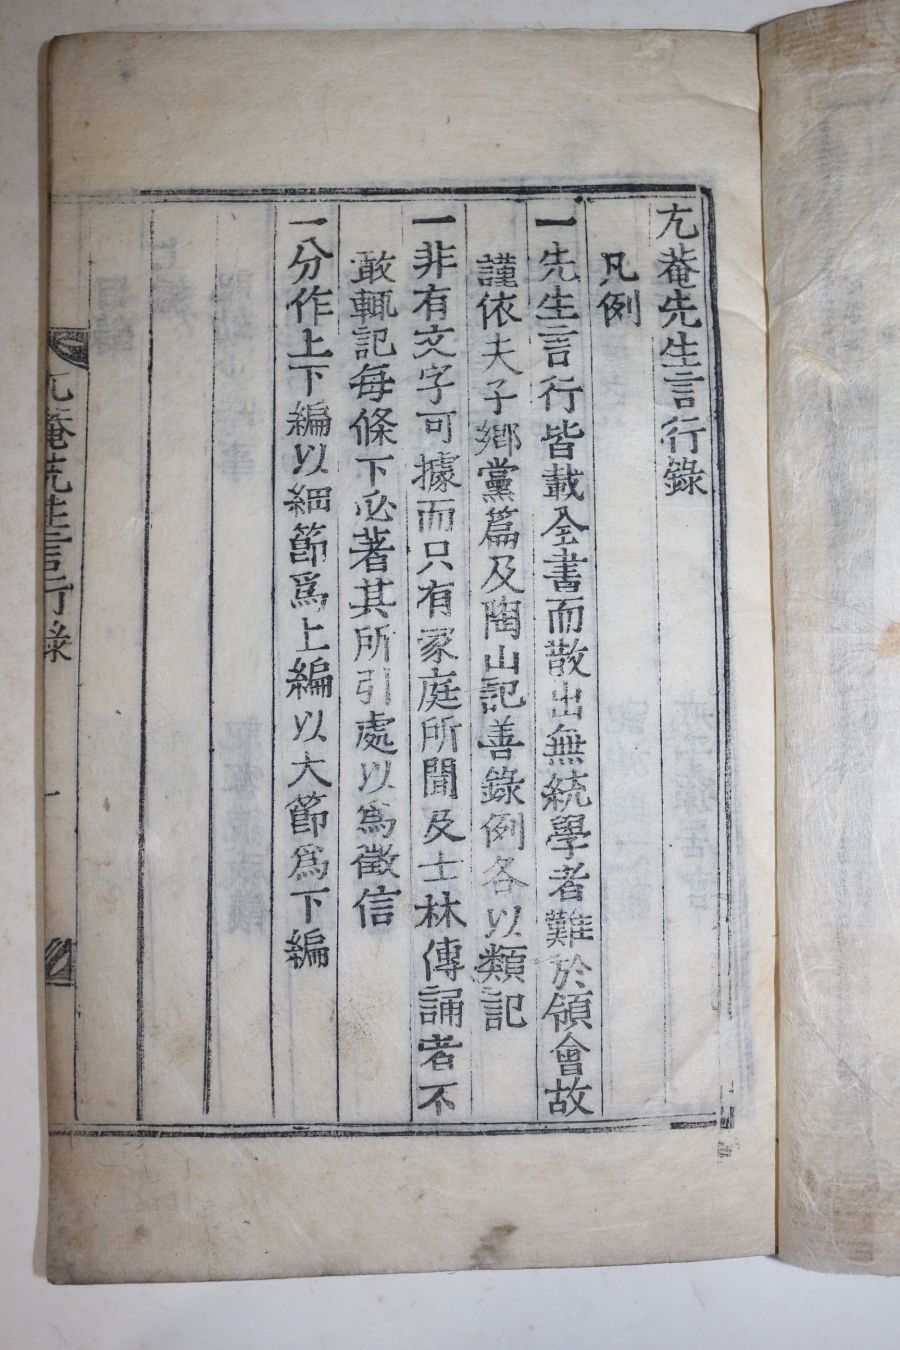 尢菴先生言行錄
凡例
一先生言行皆載全書而散出無統學者難於領會故
謹依夫子鄉黨篇及陶山記善錄例各以類記
一非有文字可據而只有家庭所聞及士林傳誦者不
敢輒記每條下必著其所引處以爲徵信
一分作上下編以細節爲上編以大節爲下編
尢菴先生言行錄
一